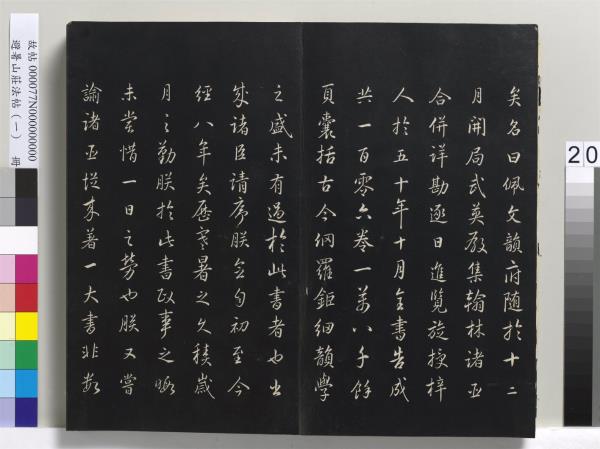 矣名曰佩文韻府随於十二
月開局武英殿集翰林諸臣
合併詳勘逐日進覽旋授梓
人於五十年十月全書告成
共一百零六卷一萬八千餘
頁囊括古今網羅鉅細韻學
之盛未有過於此書者也書
成諸臣請序朕念自初至今
經八年矣歷寒暑之久積歲
月之勤朕於此書政事之暇
未嘗惜一日之勞也朕又嘗
諭諸臣從來著一大書非數
故帖 000077N000000000
避暑山莊法帖（一） 冊
20